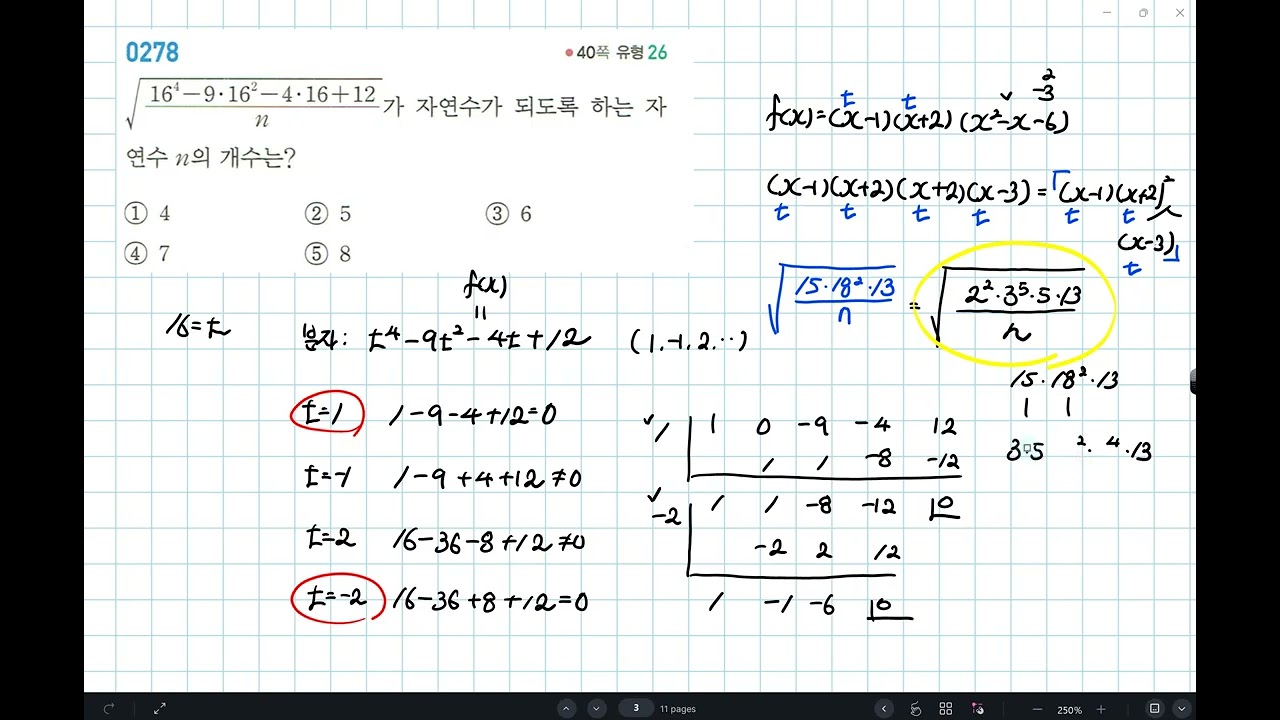 0278
● 40쪽 유형 26
√((16⁴-9·16²-4·16+12)/n) 가 자연수가 되도록 하는 자
연수 n의 개수는?
① 4 ② 5 ③ 6
④ 7 ⑤ 8
16=t
f(x)
॥
분자: t⁴-9t²-4t+12 (1,-1,2,··)
t=1 1-9-4+12=0
t=-1 1-9+4+12≠0
t=2 16-36-8+12≠0
t=-2 16-36+8+12=0
✓ 1 | 1 0 -9 -4 12
1 1 -8 -12
✓ -2 | 1 1 -8 -12 |0
-2 2 12
1 -1 -6 |0
2
✓ -3
t t
f(x)=(x-1)(x+2)(x²-x-6)
(x-1)(x+2)(x+2)(x-3)=「(x-1)(x+2)²
t t t t t t
(x-3)」
t
√((15·18²·13)/n) = √((2²·3⁵·5·13)/n)
15·18²·13
3·5 ²·⁴·13
3 11 pages
250%